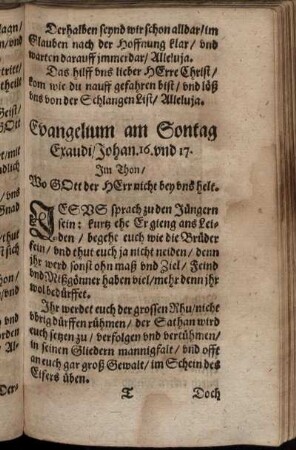 Derhalben seynd wir schon alldar/im
Glauben nach der Hoffnung klar/ vnd
warten darauff jmmerdar/ Alleluja.
Das hilff vns lieber HErre Christ/
kom wie du nauff gefahren bist/ vnd löß
vns von der Schlangen List/ Alleluja.
Evangelium am Sontag
Exaudi/Johan. 16. vnd 17.
Im Thon/
Wo GOtt der HErr nicht bey vns helt.
JESVS sprach zu den Jüngern
sein: kurtz ehe Er gieng ans Lei-
den/ begehe euch wie die Brüder
fein/ vnd thut euch ja nicht neiden/ denn
jhr werd sonst ohn maß vnd Ziel/ Feind
vnd Mißgönner haben viel/mehr denn jhr
wol bedürffet.
Ihr werdet euch der grossen Rhu/nicht
vbrig dürffen rühmen/ der Sathan wird
euch setzen zu/ verfolgen vnd vertühmen/
in seinen Gliedern mannigfalt/ vnd offt
an euch gar groß Gewalt/ im Schein des
Eifers üben.
T Doch